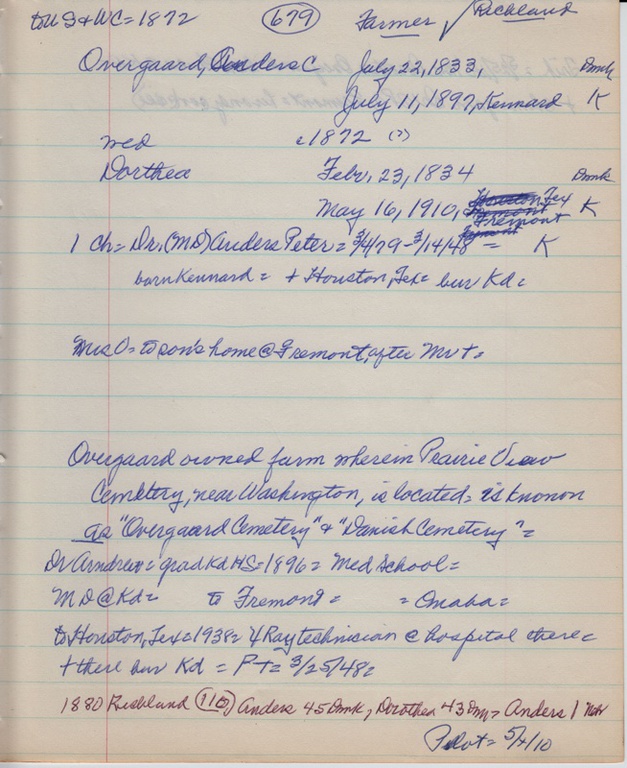 to US & WC = 1872 679 Farmer Richland
Overgaard, Anders C July 22, 1833, Dmk
July 11, 1897, Kennard K
med c 1872 (?)
Dorthea Febr, 23, 1834 Dmk
May 16, 1910, Houston Tex K
Fremont
1 ch = Dr. (MD) Anders Peter = 3/4/79 - 3/14/48 = K
born Kennard = + Houston, Tex = bur Kd =
Mrs O = to son's home @ Fremont, after Mr + =
Overgaard owned farm wherein Prairie View
Cemetery, near Washington, is located = is known
as "Overgaard Cemetery" & "Danish Cemetery" =
Dr Andrew = grad Kd HS = 1896 = Med School =
MD @ Kd = to Fremont = = Omaha =
to Houston, Tex = 1938 = X Ray technician @ hospital there =
+ there bur Kd = PT = 3/25/48 =
1880 Richland (116) Anders 45 Dmk, Dorothea 43 Dm > Anders 1 Nebr
Pilot = 5/ /10